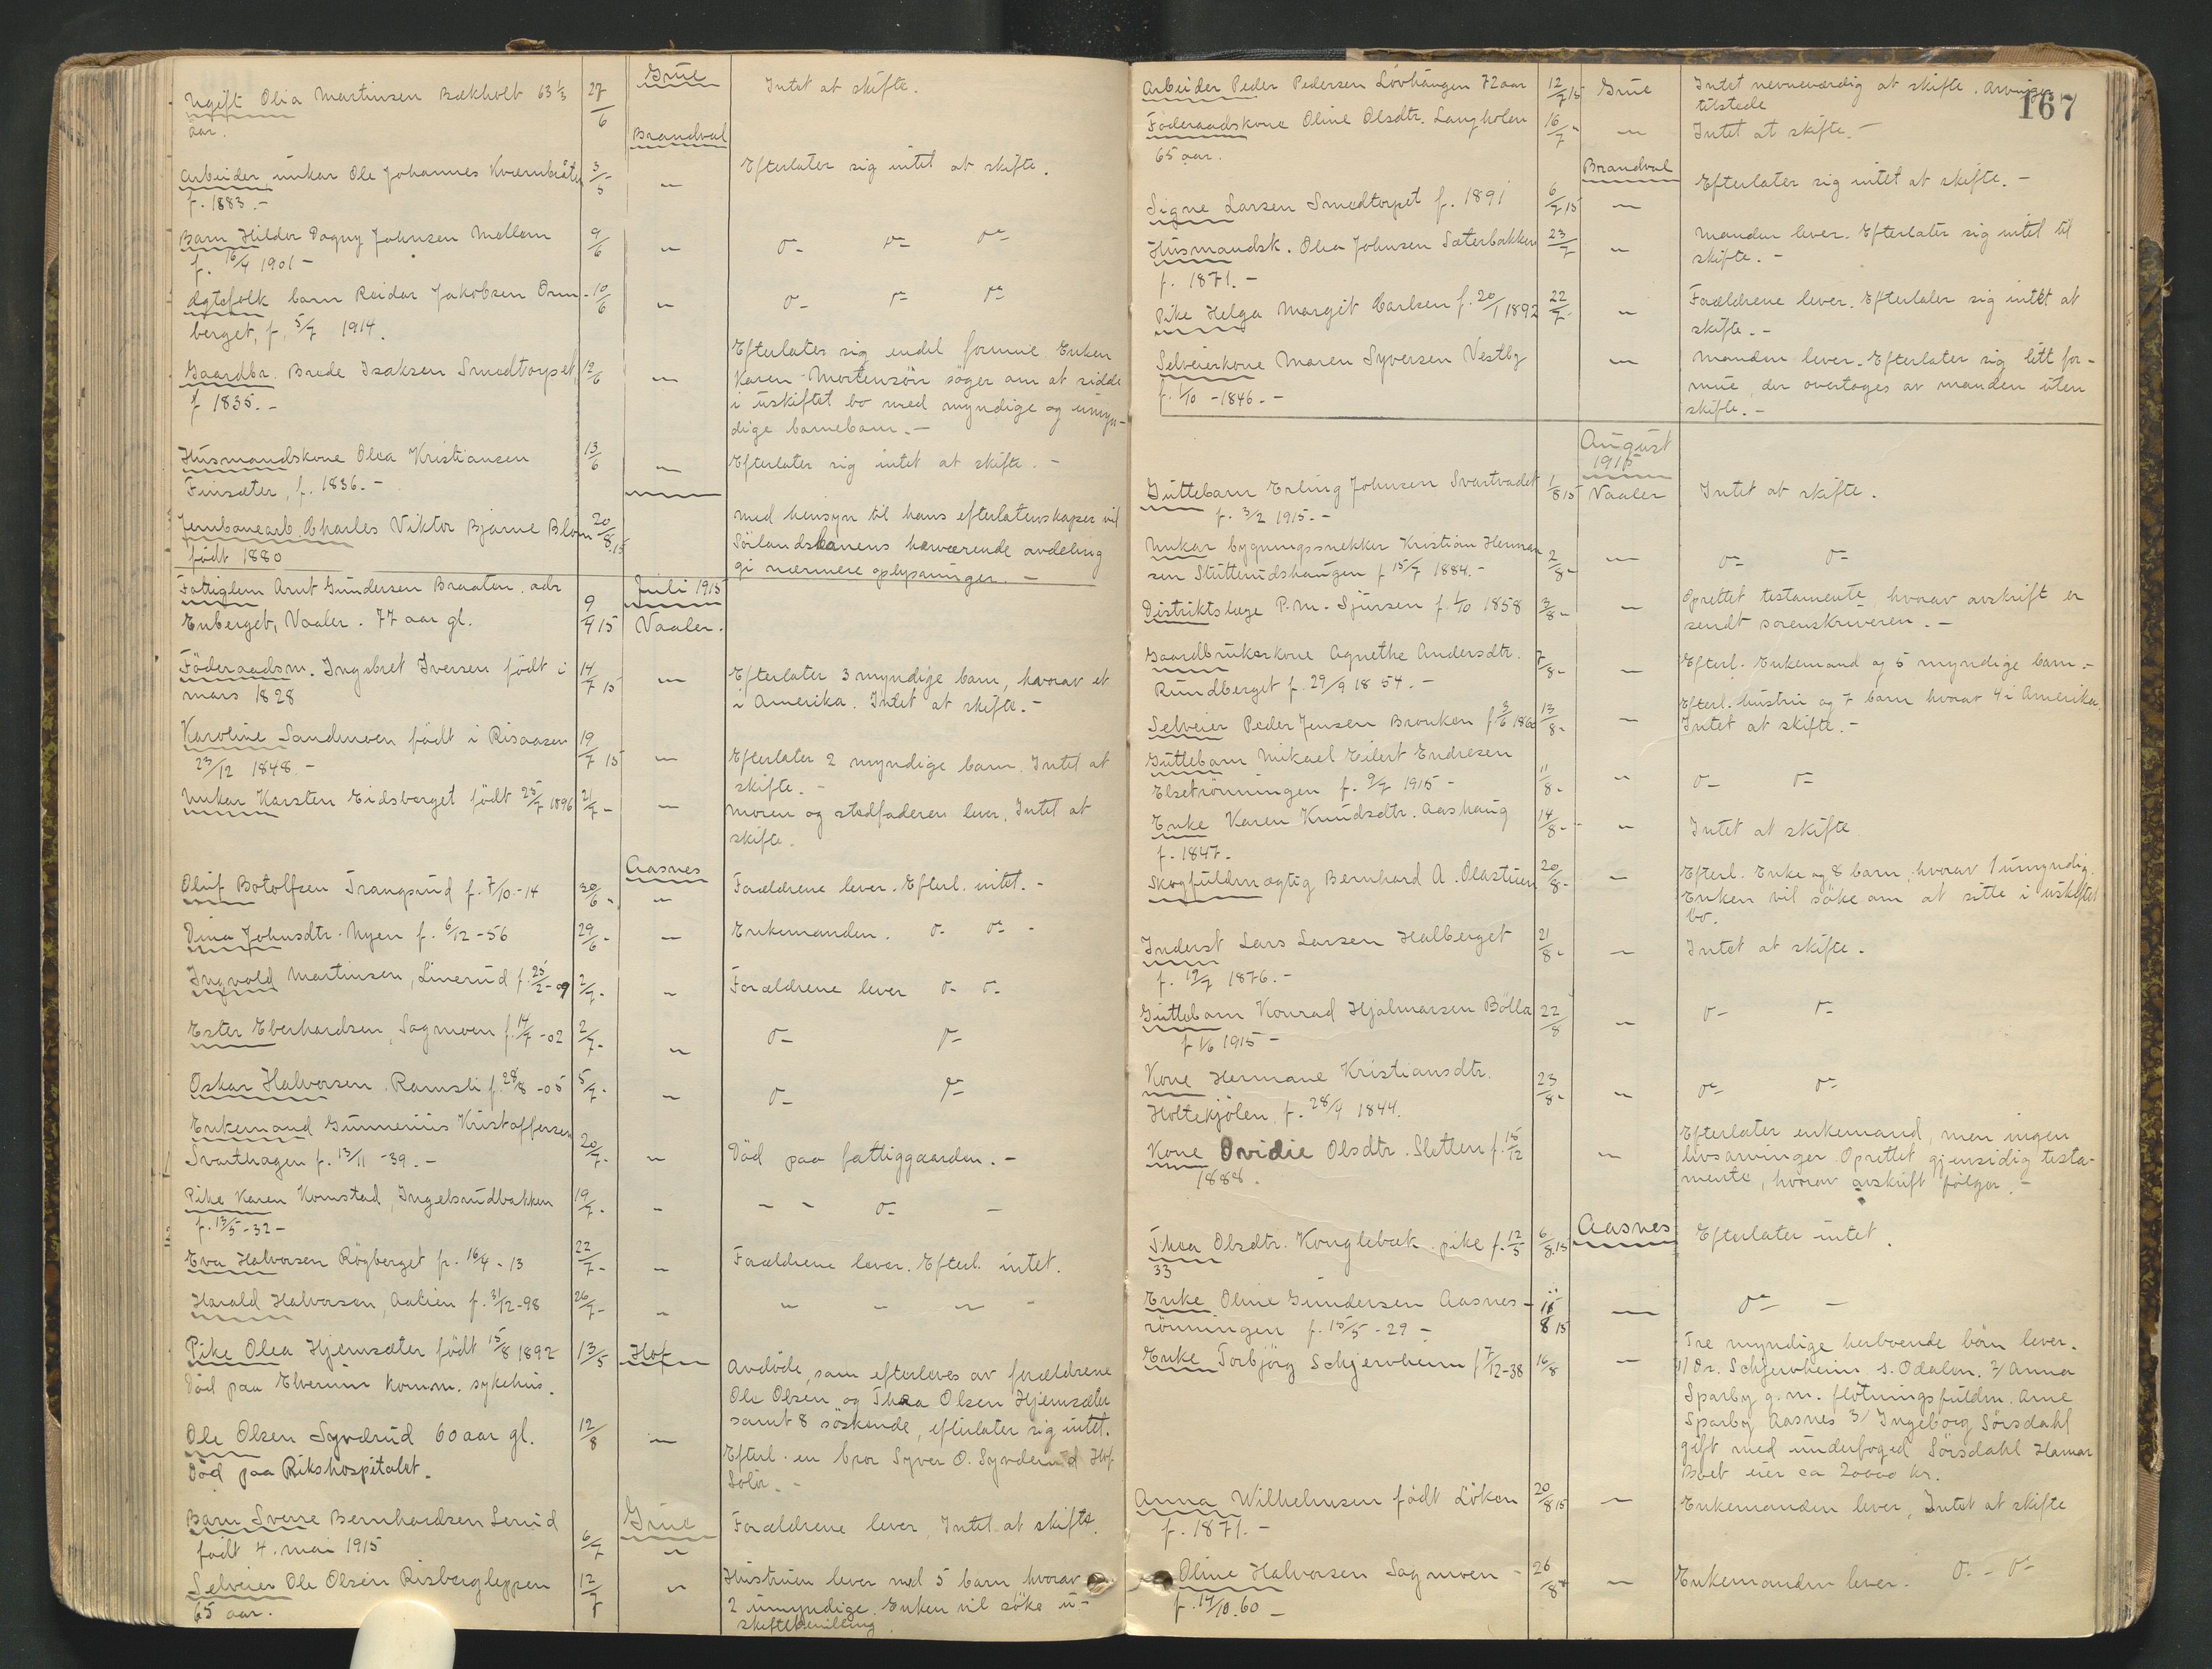 Grue
Ugift Olia Martinsen Bækholt 63 1/3 27/6 Intet at skifte.
aar.
Brandval
Arbeider unkar Ole Johannes Kvernbråten 3/5 — Efterlater sig intet at skifte.
f. 1883.-
Barn Hildor Dagny Johnsen Mellem 9/6 — o- o- o-
f. 16/4 1901-
Ægtefolk barn Reidar Jakobsen Orm- 10/6 — o- o- o-
berget, f. 5/7 1914.
Efterlater sig endel formue Enken
Gaardbr. Brede Isaksen Smedtorpet, 12/6 — Karen Mortensön söger om at sidde
f 1835.- i uskiftet bo med myndige og umyn-
dige barnebarn.-
Husmandskone Olea Kristiansen 13/6 — Efterlater sig intet at skifte.-
Finsæter, f. 1836.-
Jernbanearb. Charles Viktor Bjarne Blom 20/8.15 Med hensyn til hans efterlatenskaper vil
födt 1880 Sörlandsbanens herværende avdeling
gi nærmere oplysninger.-
Juli 1915
Fattiglem Arnt Gundersen Braaten. adr
Enberget, Vaaler. 77 aar gl. 9/4 15 Vaaler.
Föderaadsm. Ingebret Iversen födt i 14/7 15 — Efterlater 3 myndige barn, hvorav et
mars 1828 i Amerika. Intet at skifte.-
Karoline Sandmoen födt i Risaasen 19/7 15 — Efterlater 2 myndige barn. Intet at
23/12 1848.- skifte.-
Unkar Karsten Eidsberget födt 25/7 1896 21/7- — Moren og stedfaderen lever. Intet at
skifte.
Aasnes
Oluf Botolfsen Trangsund f. 7/10.-14 30/6 — Forældrene lever. Efterl. intet.-
Dina Johnsdtr. Myen f. 6/12-56 29/6- — Enkemanden. o- o- -
Ingvald Martinsen, Linerud f. 25/2-09 2/7- — Forældrene lever o- o-
Ester Eberhardsen, Sagmoen f. 14/7-02 2/7- — o- o-
Oskar Halvorsen. Ramsli f. 28/8-05 5/7- — o- o-
Enkemand Gunnerius Kristoffersen
Svarthagen f. 13/11-39.- 20/7- — Död paa fattiggaarden.-
Pike Karen Kornstad, Ingelsrudbakken 19/7- — - - o- -
f. 13/5-32-
Eva Halvorsen Rögberget f. 16/4-13 22/7- — Forældrene lever. Efterl. intet.
Harald Halvorsen, Aalien f. 31/12-98 26/7- — - - - -
Pike Olea Hjemsæter födt 15/8 1892 13/5 Hof Avdöde, som efterleves av forældrene
Död paa Elverum komm. sykehus. Ole Olsen og Thea Olsen Hjemsæter
samt 8 söskende, efterlater sig intet.
Ole Olsen Syndrud 60 aar gl. 12/8 — Efterl. en bror Syver O. Synderud Hof
Död paa Rikshospitalet. Solör.-
Grue
Barn Sverre Bernhardsen Lerud 6/7 — Forældrene lever, Intet at skifte.
födt 4. mai 1915
Selveier Ole Olsen Risbergleppen 12/7 — Hustruen lever med 5 barn hvorav
65 aar. 2 umyndige. Enken vil söke u-
skiftebevilling
167
Arbeider Peder Pedersen Lövhaugen 72 aar 12/7 15 Grue Intet nevneværdig at skifte. Arvinger
tilstede
Föderaadskone Oline Olsdtr. Langholen 16/7- — Intet at skifte.-
65 aar.
Brandval
Signe Larsen Smedtorpet f. 1891 6/7 15 — Efterlater sig intet at skifte.-
Husmandsk. Olea Johnsen Sæterbakken 23/7 — Manden lever. Efterlater sig intet til
f. 1871.- skifte.-
Pike Helga Margit Carlsen f. 20/1 1892 22/7- — Forældrene lever. Efterlater sig intet at
skifte.-
Selveierkone Maren Syversen Vestby — Manden lever. Efterlater sig litt for-
f. 1/10-1846.- mue, der overtages av manden uten
skifte.-
August
1915
Guttebarn Erling Johnsen Svartvadet 1/8 15 Vaaler Intet at skifte.
f. 3/2 1915.-
Unkar bygningssnekker Kristian Herman 2/8- — o- o-
sen Stutterudshaugen f 15/7 1884.-
Distriktslæge P. M. Sjursen f. 1/10 1858 3/8- — Oprettet testamente, hvorav avskrift er
sendt sorenskriveren.-
Gaardbrukerkone Agnethe Andersdtr. 7/8- — Efterl. Enkemand og 5 myndige barn.-
Rundberget f. 29/9 1854.-
Selveier Peder Jensen Brouken f. 3/6 1860 13/8- — Efterl. hustru og 7 barn hvorav 4 i Amerika.
Intet at skifte.-
Guttebarn Mikael Eilert Endresen
Elsetrönningen f. 9/7 1915- 11/8- — o- o-
Enke Karen Knudsdtr. Aashaug 14/8- — Intet at skifte
f. 1847.
Skogfuldmægtig Bernhard A. Olastuen 20/8- — Efterl. Enke og 8 barn, hvorav 1 umyndig.
Enken vil söke om at sitte i uskiftet
bo.
Inderst Lars Larsen Halberget 21/8- — Intet at skifte.
f. 19/7 1876.-
Guttebarn Konrad Hjalmarsen Bölla 22/8 — o- o-
f 1/6 1915-
Kone Hermane Kristiansdtr. 23/8- — o- o-
Holtekjölen, f. 28/4 1844.
Kone Ovidie Olsdtr. Sletten f. 15/12 — Efterlater enkemand, men ingen
1888. livsarvinger. Oprettet gjensidig testa-
mente, hvorav avskrift fölger.-
Thea Olsdtr. Konglebæk pike f. 12/5 6/8.15 Aasnes Efterlater intet.
33
Enke Oline Gundersen Aasnes- 11/8 15 — o- -
rönningen f. 15/5-29-
Enke Torbjörg Schjerveheim f 7/12-38 16/8 — Tre myndige herboende börn lever.
1/ Dr. Schjerveheim S. Odalen. 2/ Anna
Sparby g.m. flötningsfuldm. Arne
Sparby Aasnes 3/ Ingeborg Sörsdahl
gift med underfoged Sörsdahl Hamar
Boet eier ca 20000 kr.
Anna Wilhelmsen födt Löken 20/8 15 — Enkemanden lever, Intet at skifte
f. 1871.-
Oline Halvorsen Sagmoen - 26/8- — Enkemanden lever. o.- o-
f. 14/10.60-